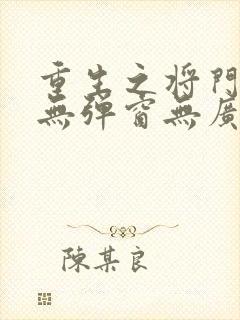 重生之将門
無弹窗無廣
陳某良